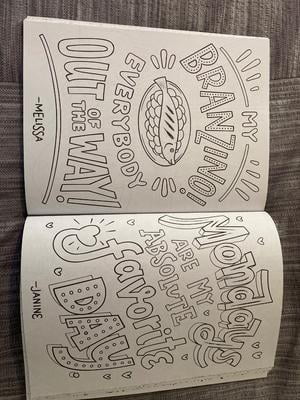 MY
BRANZINO!
EVERYBODY
OUT OF THE WAY!
–MELISSA
Mondays
ARE MY
ABSOLUTE
favorite
DAY!
–JANINE